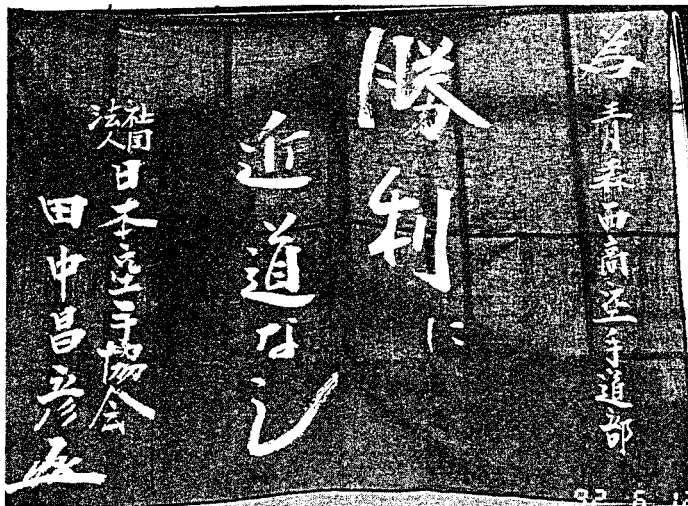 為 青森西高空手道部
勝利に
近道なし
社団法人 日本空手協会
田中昌彦